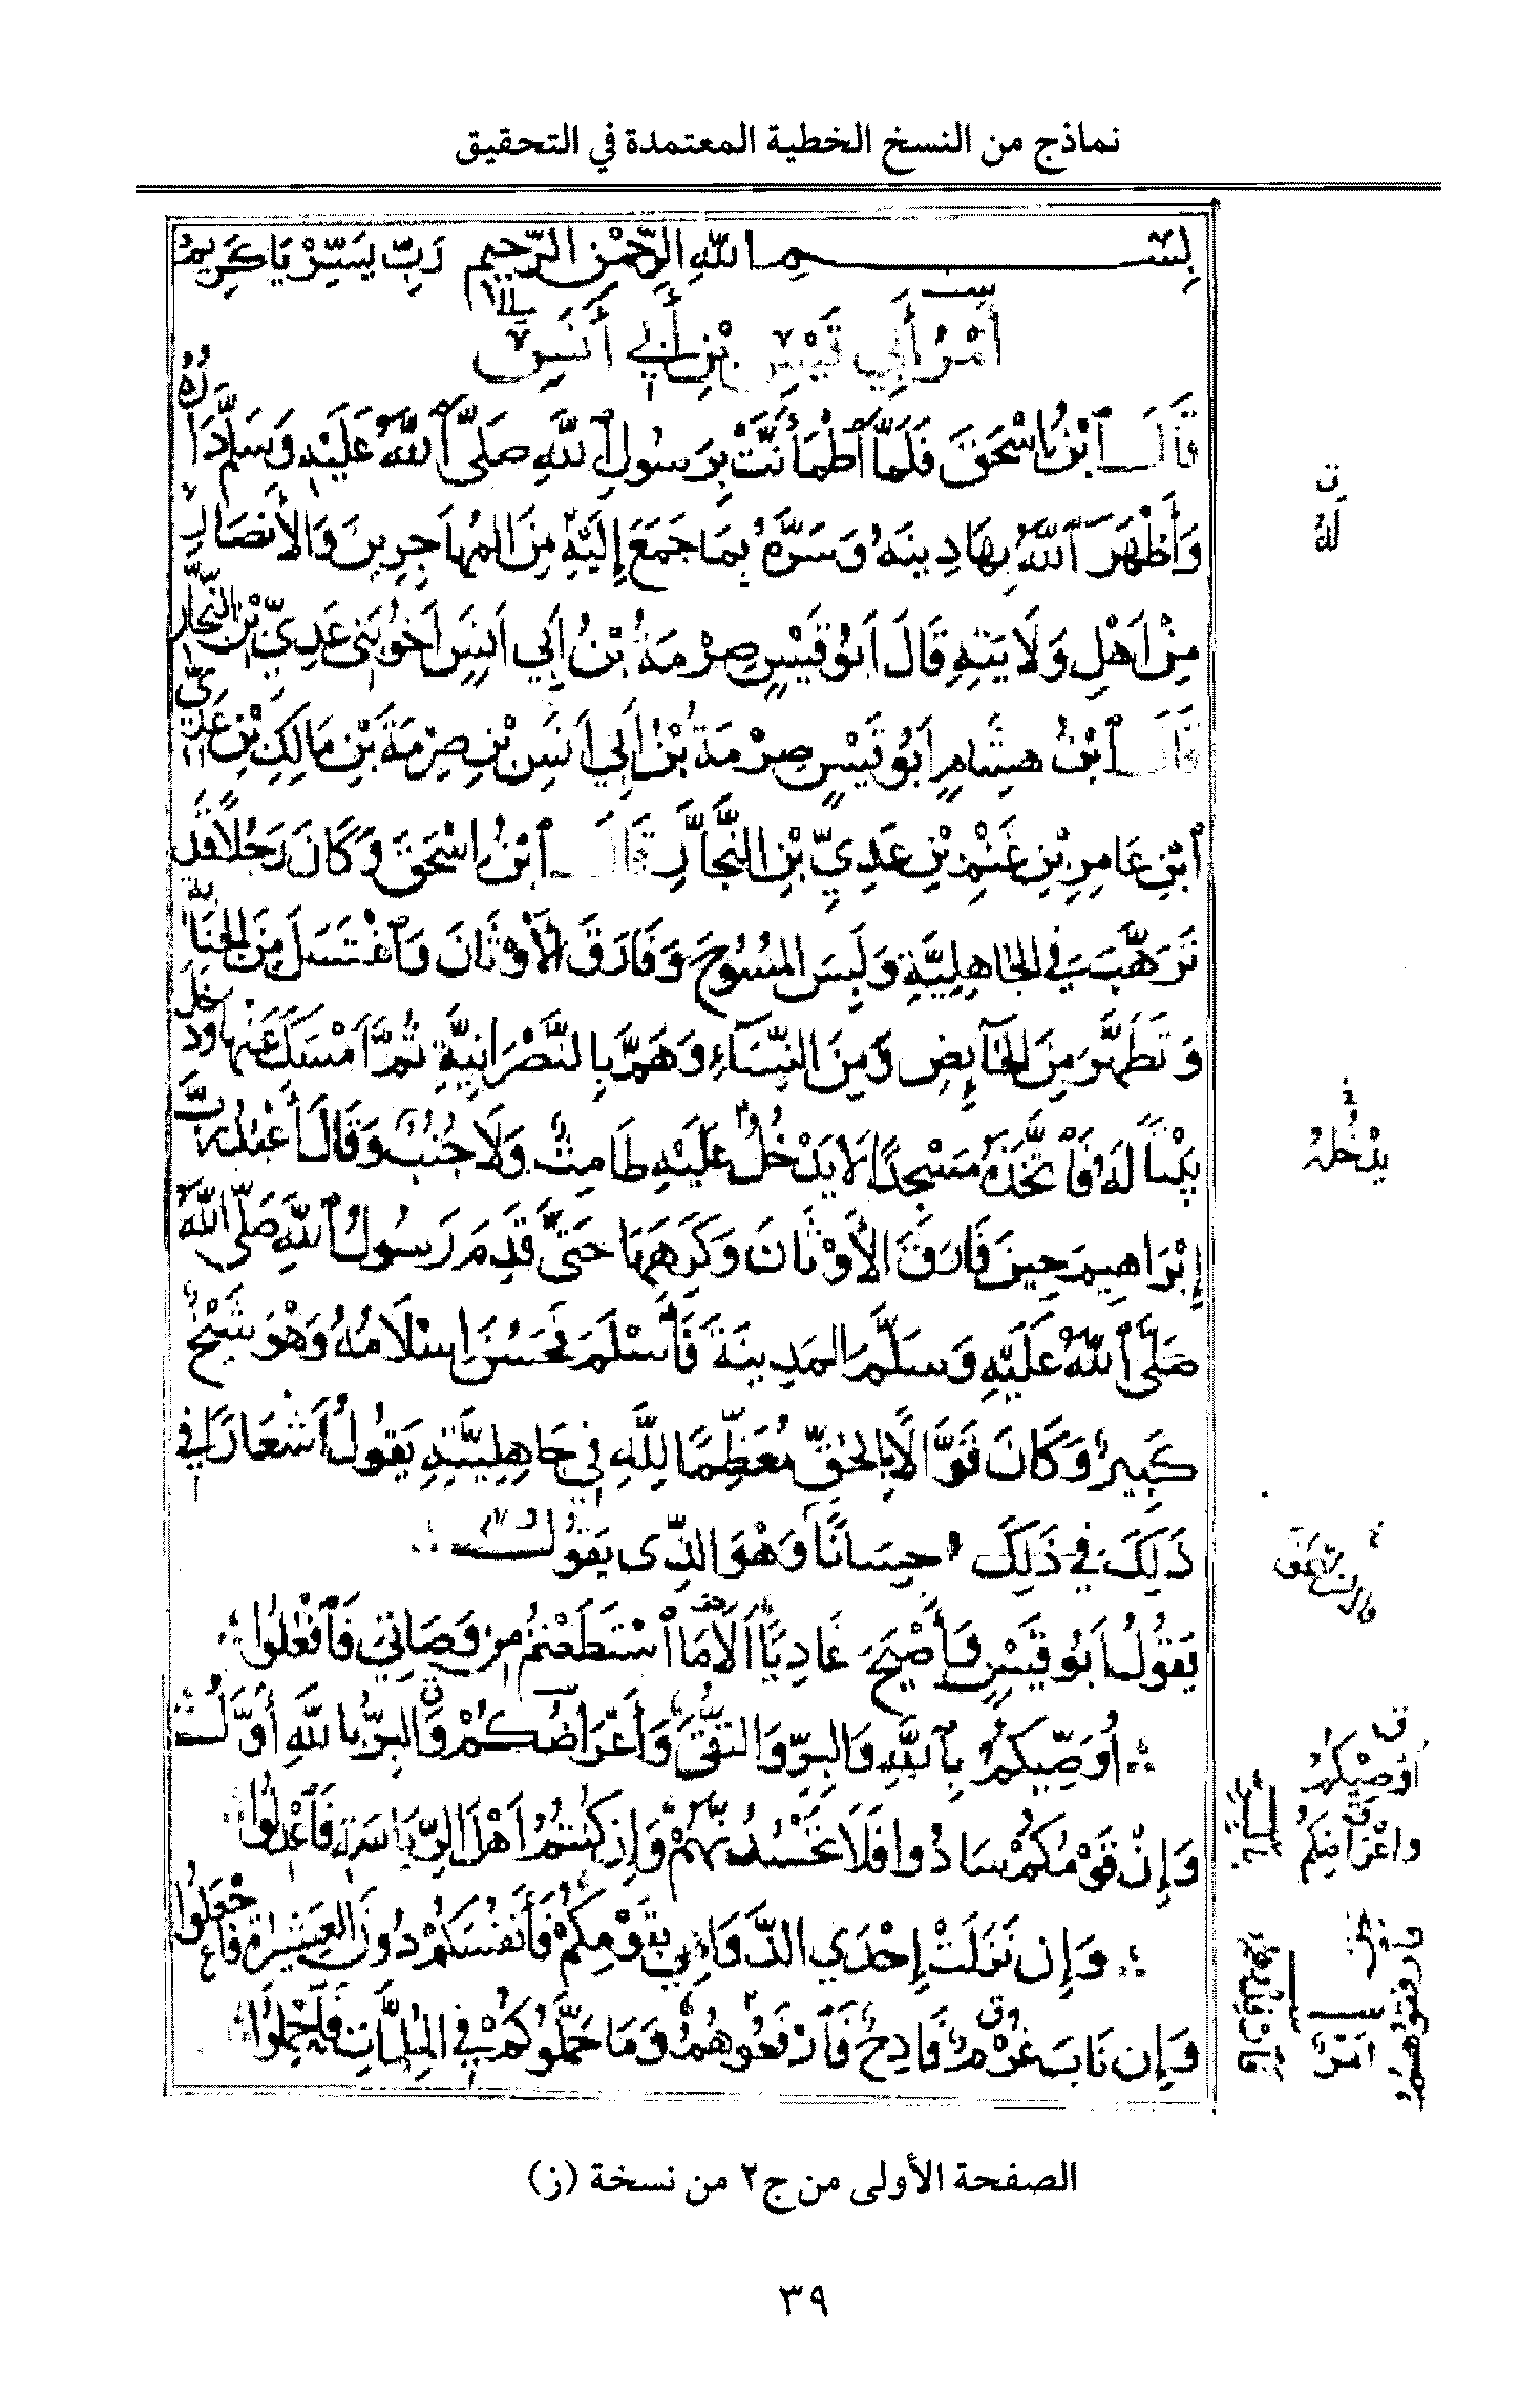 نماذج من النسخ الخطية المعتمدة في التحقيق
بِسْمِ اللهِ الرَّحْمٰنِ الرَّحِيمِ رَبِّ يَسِّرْ يَا كَرِيمُ
أَمْرُ أَبِي قَيْسِ بْنِ أَبِي أَنَسٍ
قَالَ ٱبْنُ اِسْحَقَ فَلَمَّا ٱطْمَأَنَّتْ بِرَسُولِ ٱللهِ صَلَّى ٱللهُ عَلَيْهِ وَسَلَّمَ دَارُهُ
وَأَظْهَرَ ٱللهُ بِهَا دِينَهُ وَسَرَّهُ بِمَا جَمَعَ إِلَيْهِ مِنَ المُهَاجِرِينَ وَالأَنْصَارِ
مِنْ اَهْلِ وَلَايَتِهِ قَالَ اَبُو قَيْسٍ صِرْمَةُ بْنُ أَبِي اَنَسٍ اَخُو بَنِي عَدِيِّ بْنِ النَّجَّارِ
قَالَ ٱبْنُ هِشَامٍ اَبُو قَيْسٍ صِرْمَةُ بْنُ أَبِي اَنَسِ بْنِ صِرْمَةَ بْنِ مَالِكِ بْنِ عَدِيِّ
ٱبْنِ عَامِرِ بْنِ غَنْمِ بْنِ عَدِيِّ بْنِ النَّجَّارِ قَالَ ٱبْنُ اِسْحَقَ وَكَانَ رَجُلًا قَدْ
تَرَهَّبَ فِي الجَاهِلِيَّةِ وَلَبِسَ المُسُوحَ وَفَارَقَ الأَوْثَانَ وَٱغْتَسَلَ مِنَ الجَنَابَةِ
وَتَطَهَّرَ مِنَ الحَآئِضِ وَمِنَ النِّسَآءِ وَهَمَّ بِالنَّصْرَانِيَّةِ ثُمَّ اَمْسَكَ عَنْهَا وَدَخَلَ
بَيْتاً لَهُ فَٱتَّخَذَهُ مَسْجِدًا لَا يَدْخُلُ عَلَيْهِ طَامِثٌ وَلَا جُنُبٌ وَقَالَ أَعْبُدُ رَبَّ
إِبْرَاهِيمَ حِينَ فَارَقَ الأَوْثَانَ وَكَرِهَهَا حَتَّى قَدِمَ رَسُولُ ٱللهِ صَلَّى اللهُ
صَلَّى ٱللهُ عَلَيْهِ وَسَلَّمَ المَدِينَةَ فَأَسْلَمَ فَحَسُنَ اِسْلَامُهُ وَهْوَ شَيْخٌ
كَبِيرٌ وَكَانَ قَوَّالًا بِالحَقِّ مُعَظِّمًا لِلَّهِ فِي جَاهِلِيَّتِهِ يَقُولُ اَشْعَارًا فِي
ذَلِكَ فِي ذَلِكَ حِسَانًا وَهْوَ الذِّي يَقُولُ
يَقُولُ اَبُو قَيْسٍ وَأَصْبَحَ غَادِيًا اَلَا مَا ٱسْتَطَعْتُمْ مِنْ وَصَاتِيَ فَٱفْعَلُوا
أُوَصِّيكُمُ بِٱللهِ وَالبِرِّ وَالتُّقَى وَأَعْرَاضَكُمْ وَالبِرُّ بِاللهِ أَوَّلُ
وَإِنْ قَوْمُكُمْ سَادُوا فَلَا تَحْسُدُنَّهُمْ وَإِنْ كُنْتُمُ اَهْلَ الرِّيَاسَةِ فَٱعْدِلُوا
وَإِن نَزَلَتْ إِحْدَى الدَّوَاهِي بِقَوْمِكُمْ فَأَنْفُسَكُمْ دُونَ العَشِيرَةِ فَاجْعَلُوا
وَإِن نَابَ غُرْمٌ فَادِحٌ فَٱرْفَعُوهُمُ وَمَا حَمَّلُوكُمْ فِي المُلِمَّاتِ فَٱحْمِلُوا
ن
لَهُ
يَدْخُلُهُ
قال ابن اسحق
ق
أُوْصِيْكُمُ
واعْرَاضِكُم
فارفقوهمُ
الصفحة الأولى من ج٢ من نسخة (ز)
٣٩